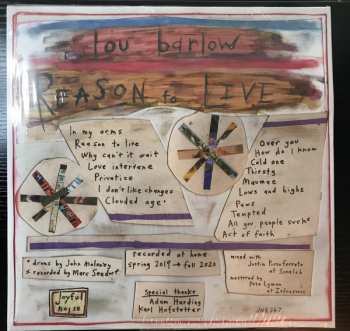 Lou Barlow
REASON to LIVE
In my arms
Reason to live
Why can't it wait
Love intervene
Privatize
I don't like changes
Clouded age *
Over you
How do I know
Cold one
Thirsty
Maumee
Lows and highs
Paws
Tempted
All you people suck
Act of faith
* drums by John Moloney
* recorded by Marc Seedorf
recorded at home
spring 2019 → fall 2020
Special thanks:
Adam Harding
Karl Hofstetter
mixed with
Justin Pizzoferrato
at Sonelab
mastered by
Pete Lyman
at Infrasonic
Joyful
Noise
JNR347